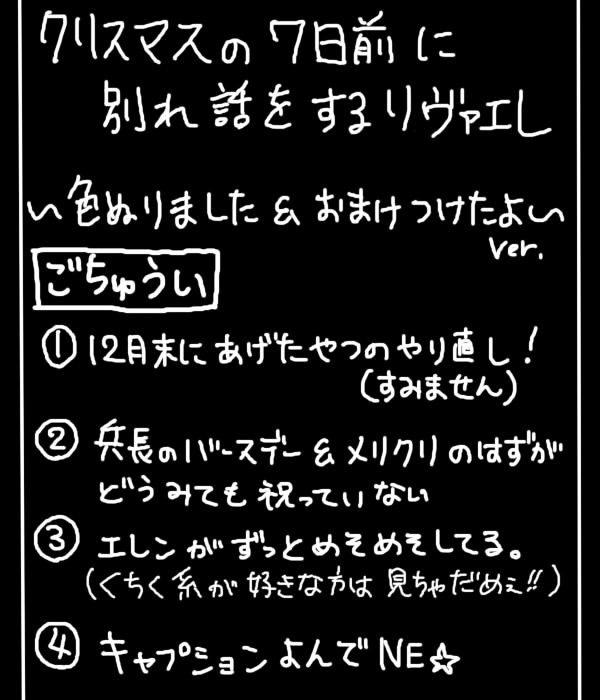 クリスマスの7日前に
別れ話をするリヴァエレ
い色ぬりました&おまけつけたよい
ver.
ごちゅうい
① 12月末にあげたやつのやり直し!
(すみません)
② 兵長のバースデー&メリクリのはずが
どうみても祝っていない
③ エレンがずっとめそめそしてる。
(くちく系が好きな方は見ちゃだめぇ!!)
④ キャプションよんでNE☆